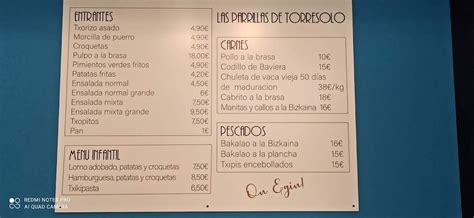 ENTRANTES
Txorizo asado 4,90€
Morcilla de puerro 4,90€
Croquetas 4,90€
Pulpo a la brasa 18,00€
Pimientos verdes fritos 4,90€
Patatas fritas 4,20€
Ensalada normal 4,50€
Ensalada normal grande 6€
Ensalada mixta 7,50€
Ensalada mixta grande 9,50€
Txopitos 7,50€
Pan 1€
MENU INFANTIL
Lomo adobado, patatas y croquetas 7,50€
Hamburguesa, patatas y croquetas 8,50€
Txikipasta 6,50€
LAS PARRILLAS DE TORRESOLO
CARNES
Pollo a la brasa 10€
Codillo de Baviera 15€
Chuleta de vaca vieja 50 días
de maduracion 38€/kg
Cabrito a la brasa 18€
Manitas y callos a la Bizkaina 16€
PESCADOS
Bakalao a la Bizkaina 16€
Bakalao a la plancha 15€
Txipis encebollados 15€
On Egin!
REDMI NOTE 9 PRO
AI QUAD CAMERA